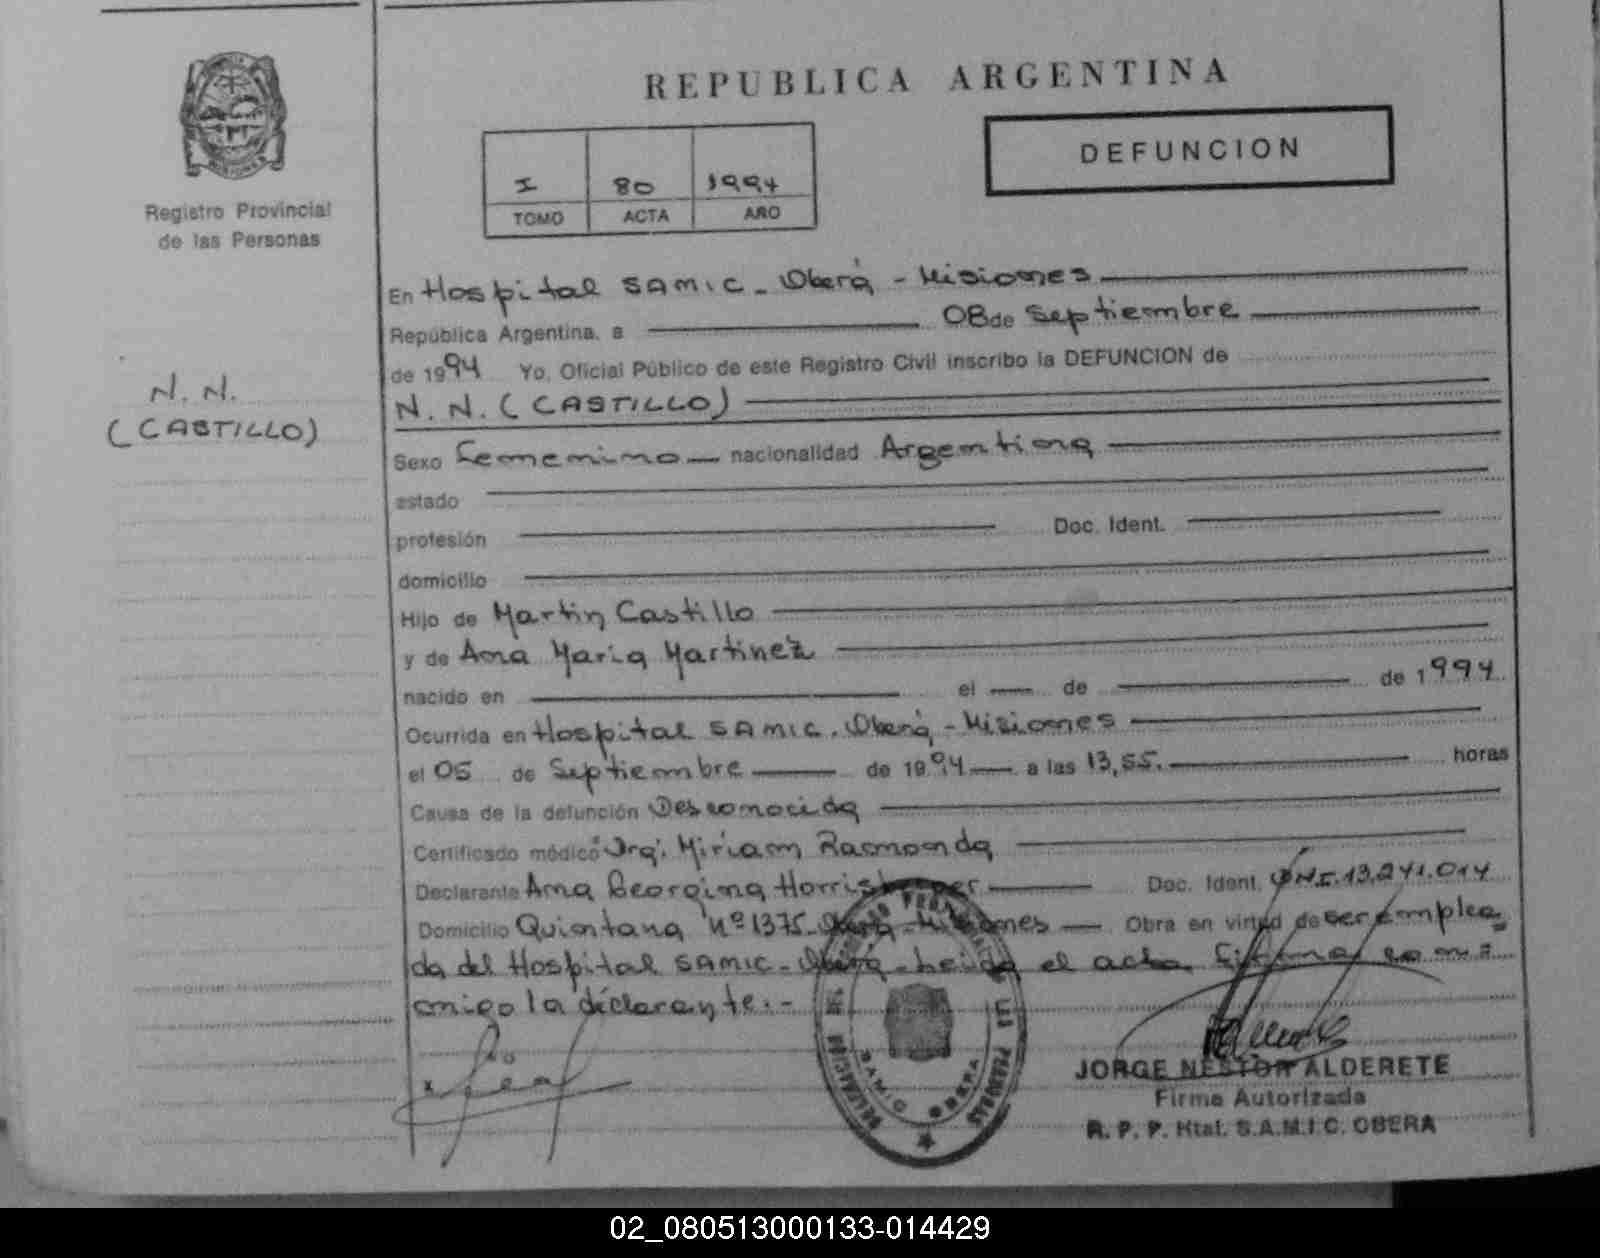 REPUBLICA ARGENTINA
I 80 1994
TOMO ACTA AÑO
DEFUNCION
MISIONES
Registro Provincial
de las Personas
N. N.
(CASTILLO)
En Hospital SAMIC - Oberá - Misiones
República Argentina, a 08 de Septiembre
de 1994 Yo, Oficial Público de este Registro Civil inscribo la DEFUNCION de
N. N. (CASTILLO)
Sexo Femenino nacionalidad Argentina
estado
profesión Doc. Ident.
domicilio
Hijo de Martin Castillo
y de Ana Maria Martinez
nacido en el de de 1994
Ocurrida en Hospital SAMIC. Oberá - Misiones
el 05 de Septiembre de 1994 a las 13,55. horas
Causa de la defunción Desconocida
Certificado médico Dra. Miriam Ramonda
Declarante Ana Georgina Doc. Ident. DNI. 13.241.014
Domicilio Quintana Nº 1375. Oberá - Misiones Obra en virtud de ser emplea
da del Hospital SAMIC - Oberá - Leida el acta firma con
migo la declarante.-
SAMIC OBERA
JORGE NESTOR ALDERETE
Firma Autorizada
R. P. P. Htal. S.A.M.I.C. OBERA
02_080513000133-014429